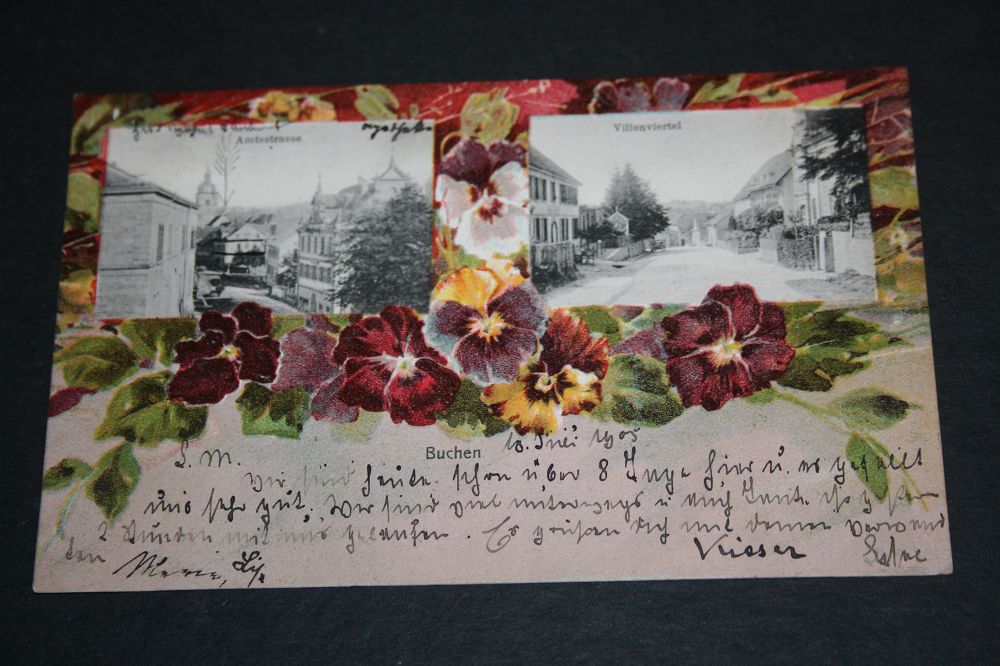 Amtsstrasse
Villenviertel
Buchen 10. Juli 1905
L. M.
Wir sind heute schon über 8 Tage hier u. es gefällt
uns sehr gut. Wir sind viel unterwegs u auch Tante ist gestern
2 Stunden mit uns gelaufen. Es grüßen Dich und deine Verwand
ten
Marie,